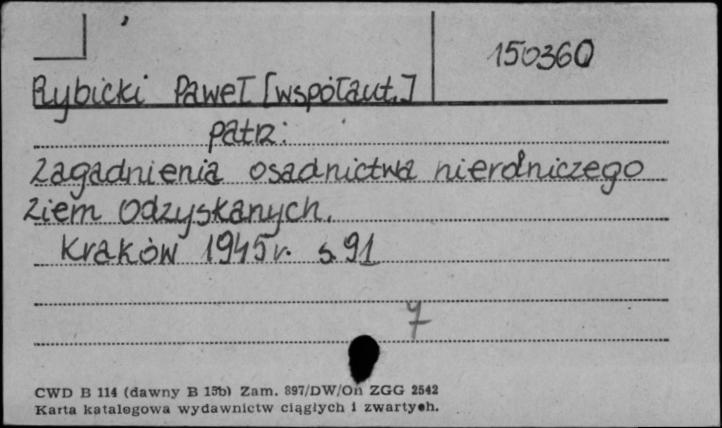 150360
Rybicki Paweł [współaut.]
patrz:
Zagadnienia osadnictwa nierolniczego
Ziem Odzyskanych.
Kraków 1945r. s. 91
7
CWD B 114 (dawny B 15b) Zam. 897/DW/On ZGG 2542
Karta katalogowa wydawnictw ciągłych i zwartych.